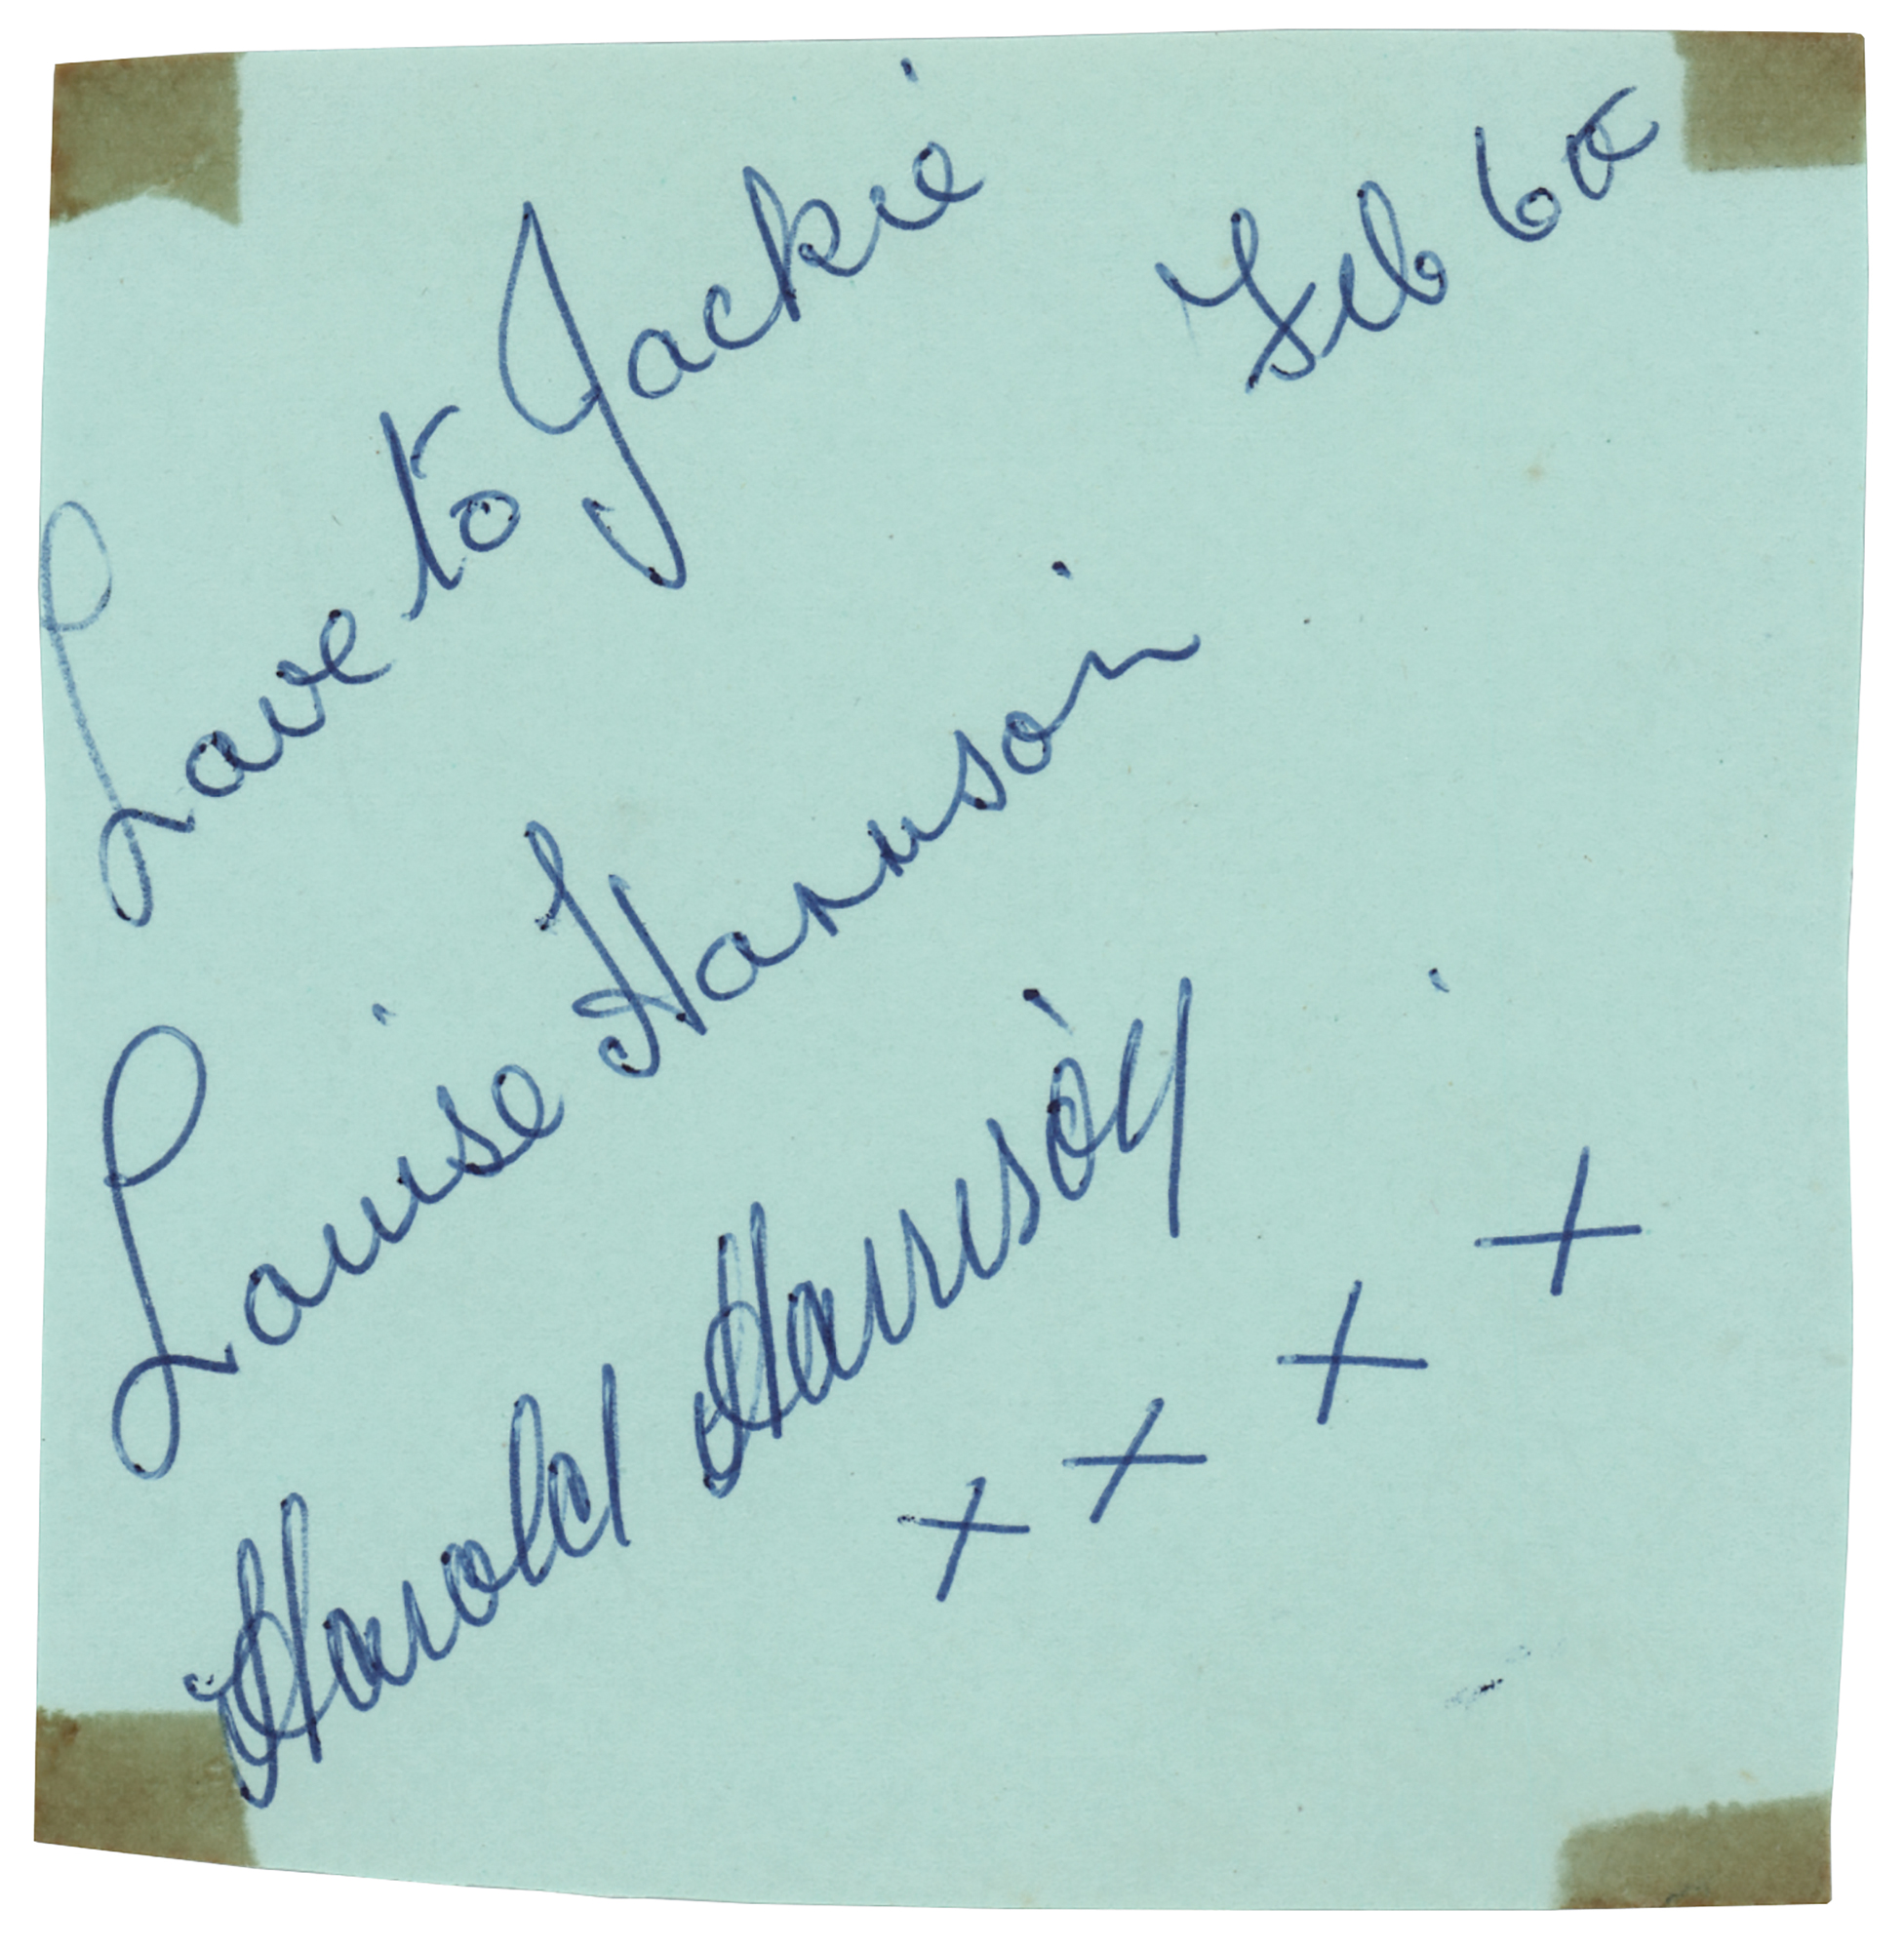 Love to Jackie
Feb
Louise Harrison
Harold Harrison
x x x x